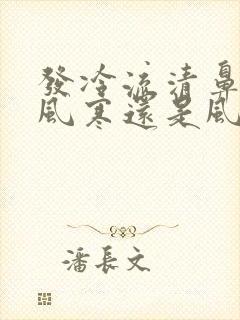 發冷流清鼻
風寒還是風
潘長文